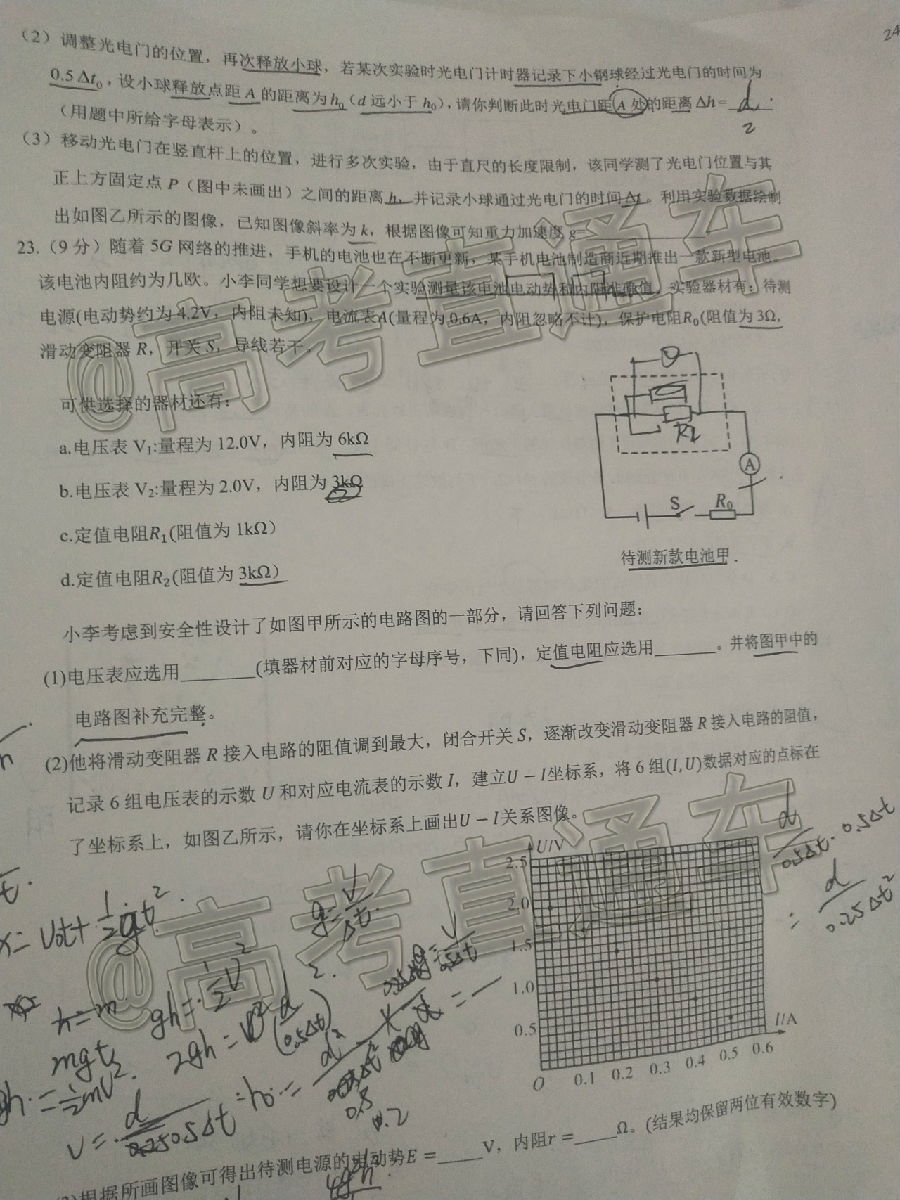 24
(2) 调整光电门的位置，再次释放小球，若某次实验时光电门计时器记录下小钢球经过光电门的时间为
0.5Δt₀，设小球释放点距 A 的距离为h₀（d 远小于 h₀），请你判断此时光电门距 A 处的距离 Δh = d/2 .
（用题中所给字母表示）。
(3) 移动光电门在竖直杆上的位置，进行多次实验，由于直尺的长度限制，该同学测了光电门位置与其
正上方固定点 P（图中未画出）之间的距离 h，并记录小球通过光电门的时间Δt。利用实验数据绘制
出如图乙所示的图像，已知图像斜率为 k，根据图像可知重力加速度 g=
23.（9 分）随着 5G 网络的推进，手机的电池也在不断更新，某手机电池制造商近期推出一款新型电池。
该电池内阻约为几欧。小李同学想要设计一个实验测量该电池电动势和内阻准确值。实验器材有：待测
电源(电动势约为 4.2V，内阻未知)，电流表A(量程为 0.6A，内阻忽略不计)，保护电阻R₀(阻值为 3Ω，
滑动变阻器 R，开关 S，导线若干。
可供选择的器材还有：
a.电压表 V₁:量程为 12.0V，内阻为 6kΩ
b.电压表 V₂:量程为 2.0V，内阻为 3kΩ
c.定值电阻R₁(阻值为 1kΩ)
d.定值电阻R₂(阻值为 3kΩ)
R₂
A
S
R₀
待测新款电池甲
小李考虑到安全性设计了如图甲所示的电路图的一部分，请回答下列问题：
(1)电压表应选用________(填器材前对应的字母序号，下同)，定值电阻应选用_______。并将图甲中的
电路图补充完整。
(2)他将滑动变阻器 R 接入电路的阻值调到最大，闭合开关 S，逐渐改变滑动变阻器 R 接入电路的阻值，
记录 6 组电压表的示数 U 和对应电流表的示数 I，建立U − I坐标系，将 6 组(I, U)数据对应的点标在
了坐标系上，如图乙所示，请你在坐标系上画出U − I关系图像。
U/V
2.5
2.0
1.5
1.0
0.5
O 0.1 0.2 0.3 0.4 0.5 0.6
I/A
x = v₀t + 1/2 gt²
g = v/Δt
gh = 1/2 v²
2gh =
mgh = 1/2 mv²
d/(0.5Δt) · 0.5Δt
= d/(0.25Δt²)
0.2
根据所画图像可得出待测电源的电动势E =_____V，内阻r =_____Ω。(结果均保留两位有效数字)
@高考直通车
@高考直通车